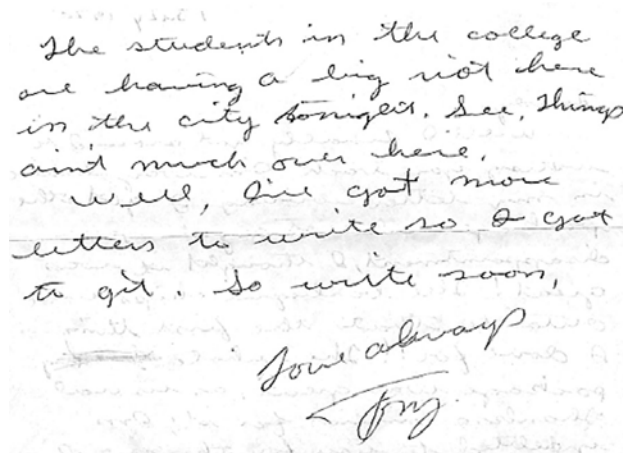 The students in the college
are having a big riot here
in the city tonight. See, Things
ain't much over here.
Well, I've got more
letters to write so I got
to git. So write soon,
Love always
Tony